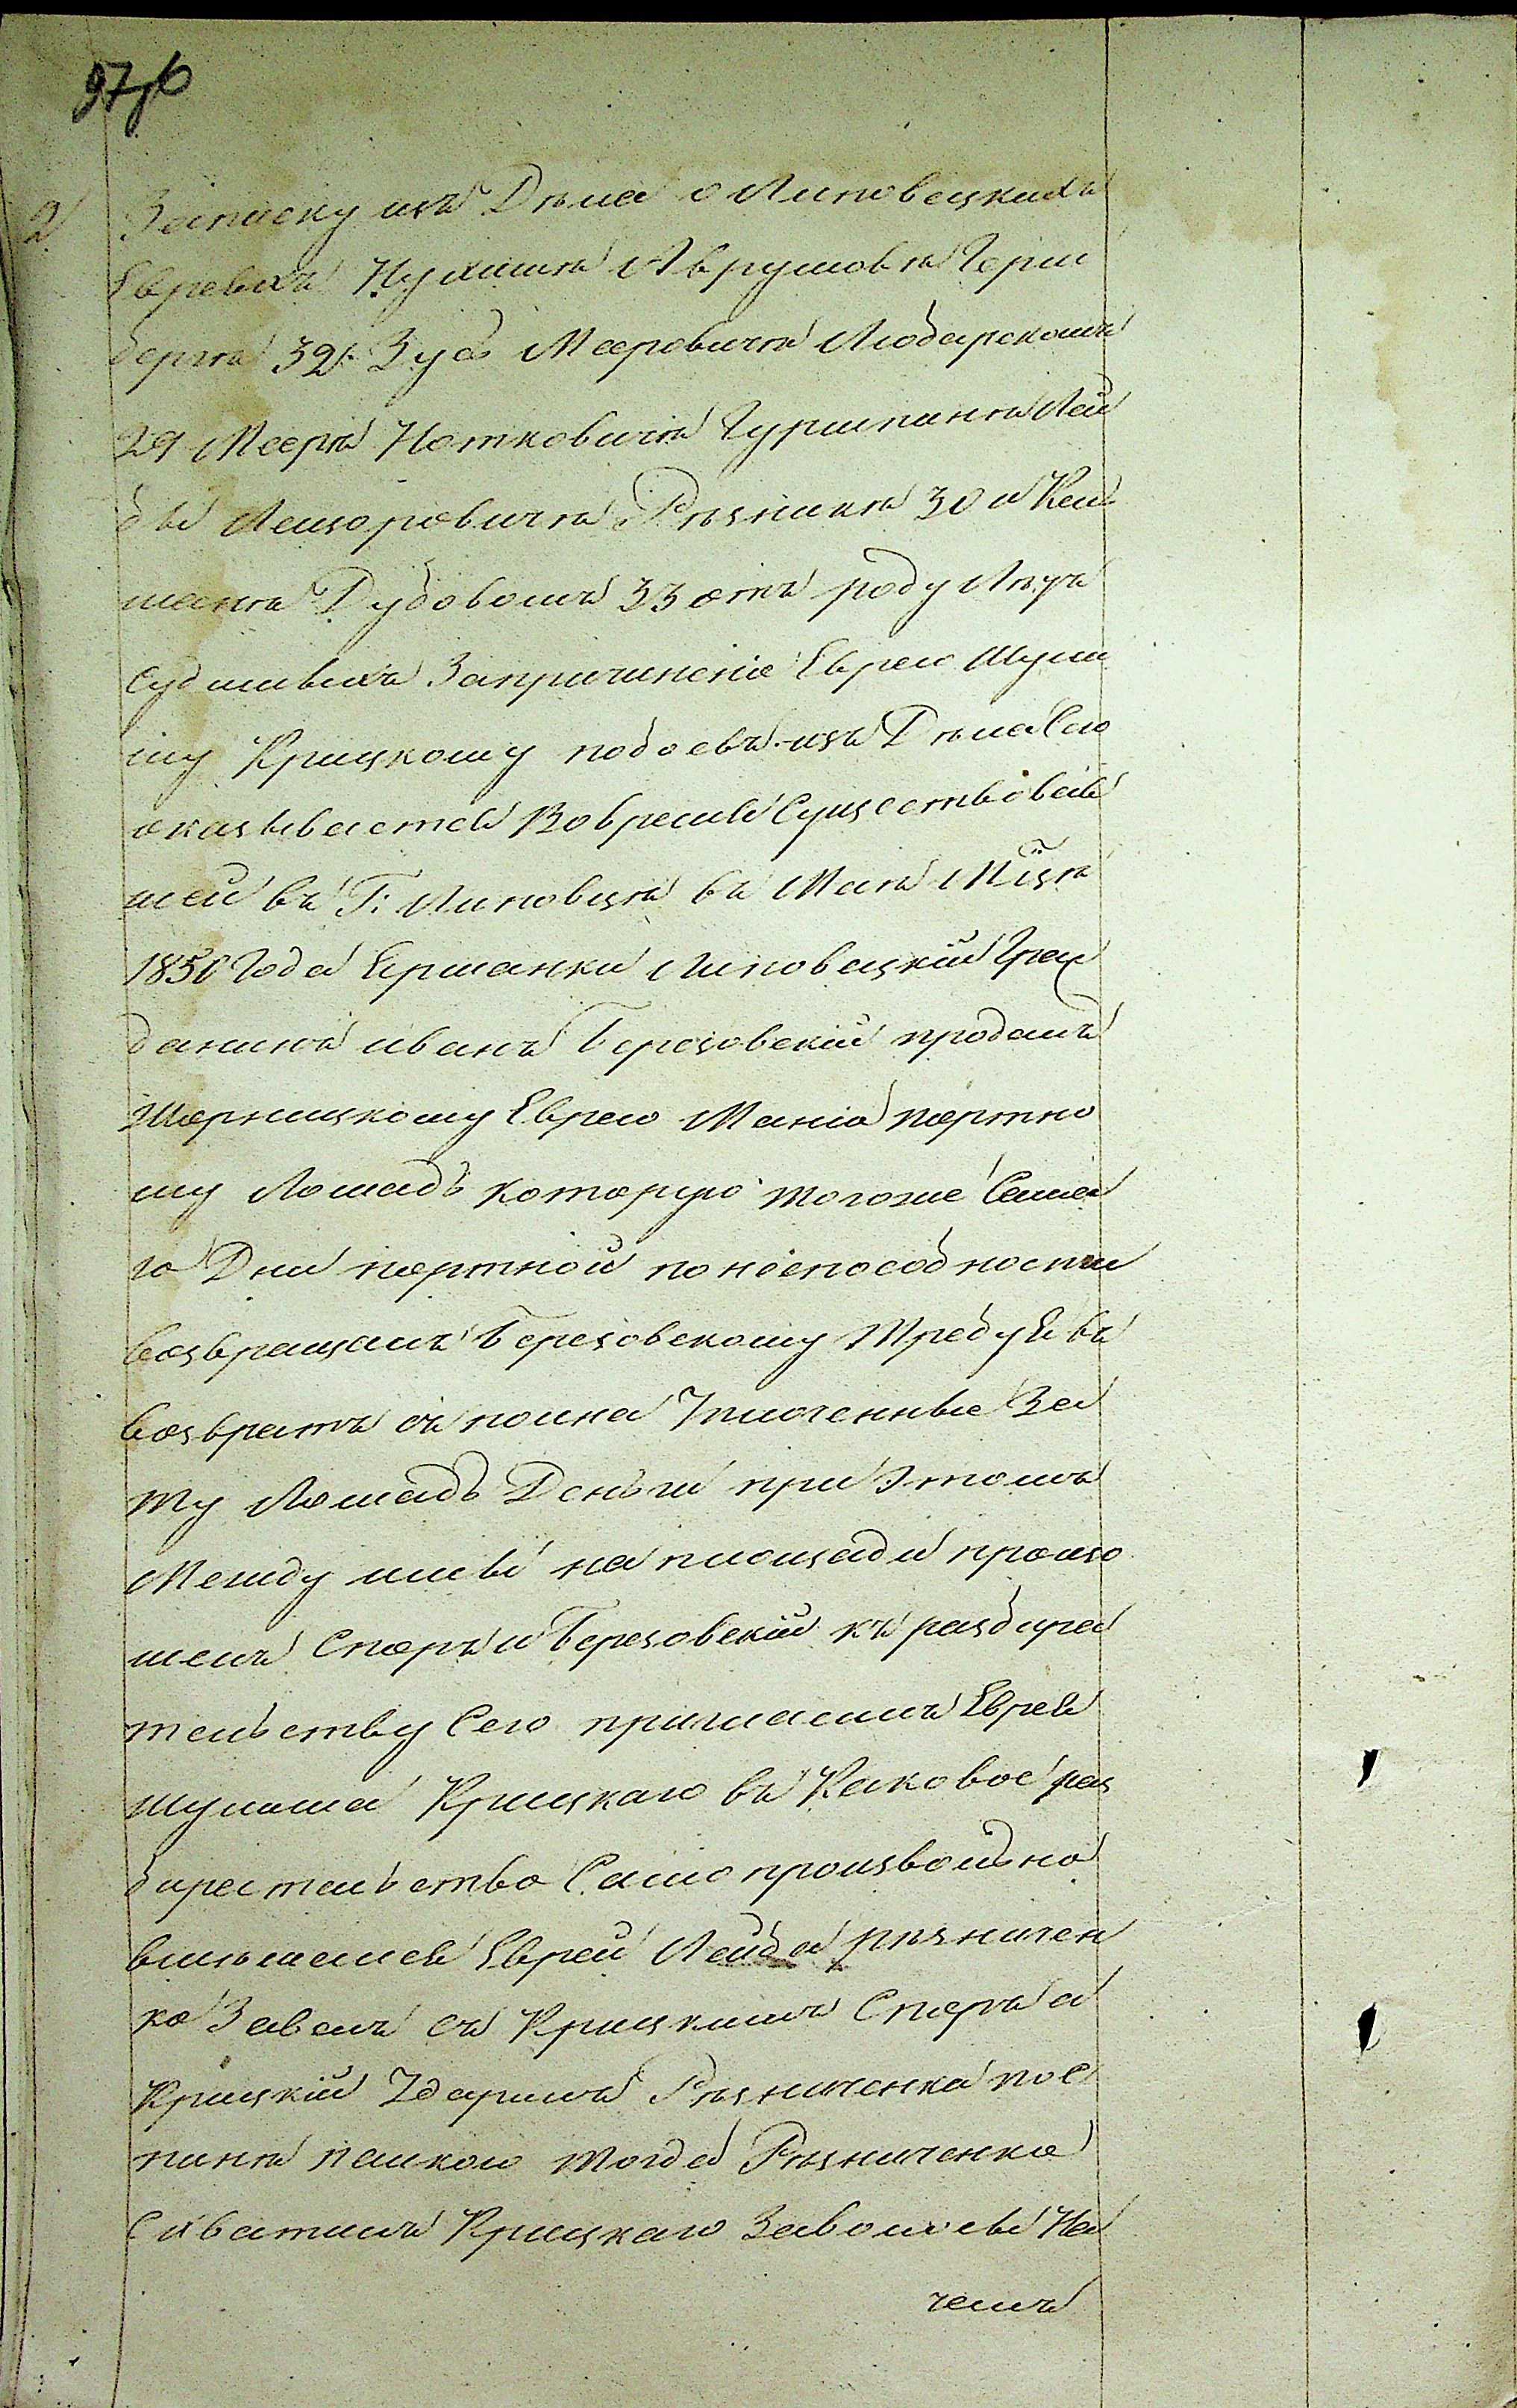 97/6
2 Записку изъ Дѣла о Липовецкихъ
Евреяхъ Нухимѣ Аврумовѣ Герш
бергѣ 32. Зусѣ Мееровичѣ Любарскомъ
29 Меерѣ Нотковичѣ Гуршпанѣ Лей
бѣ Лейзоровичѣ Рѣзникѣ 30 и Кел
манѣ Дубовомъ 33 отъ роду лѣтъ
Судимыхъ Запричиненіе Еврею Шули
му Крицкому побоевъ. изъ Дѣла Сего
оказывается Вовремя Существовав
шей въ Г: Липовцѣ въ Маѣ М҃цѣ
1850 Года Ермалки Липовецкій Граж
данинъ иванъ Березовскій продалъ
Шарницкому Еврею Манію портно
му Лошадь которую тогоже Самаго
го Дня портной понеспособности
возвращалъ Березовскому требуя въ
возвратъ сполна Уплоченныя За
ту Лошадь Деньги при этомъ
Между ими на площади произо
шелъ Споръ и Березовскій къ разбира
тельству Сего пригласилъ Еврея
шулима Крицкаго въ Каковое раз
бирательство Само произвольно
вмѣшался Еврей Лейба Рѣзничен
ко Завелъ съ Крицкимъ Споръ а
Крицкій Ударилъ Рѣзниченка пос
пинѣ палкою тогда Рѣзниченко
Схватилъ Крицкаго Заволосы На
чемъ